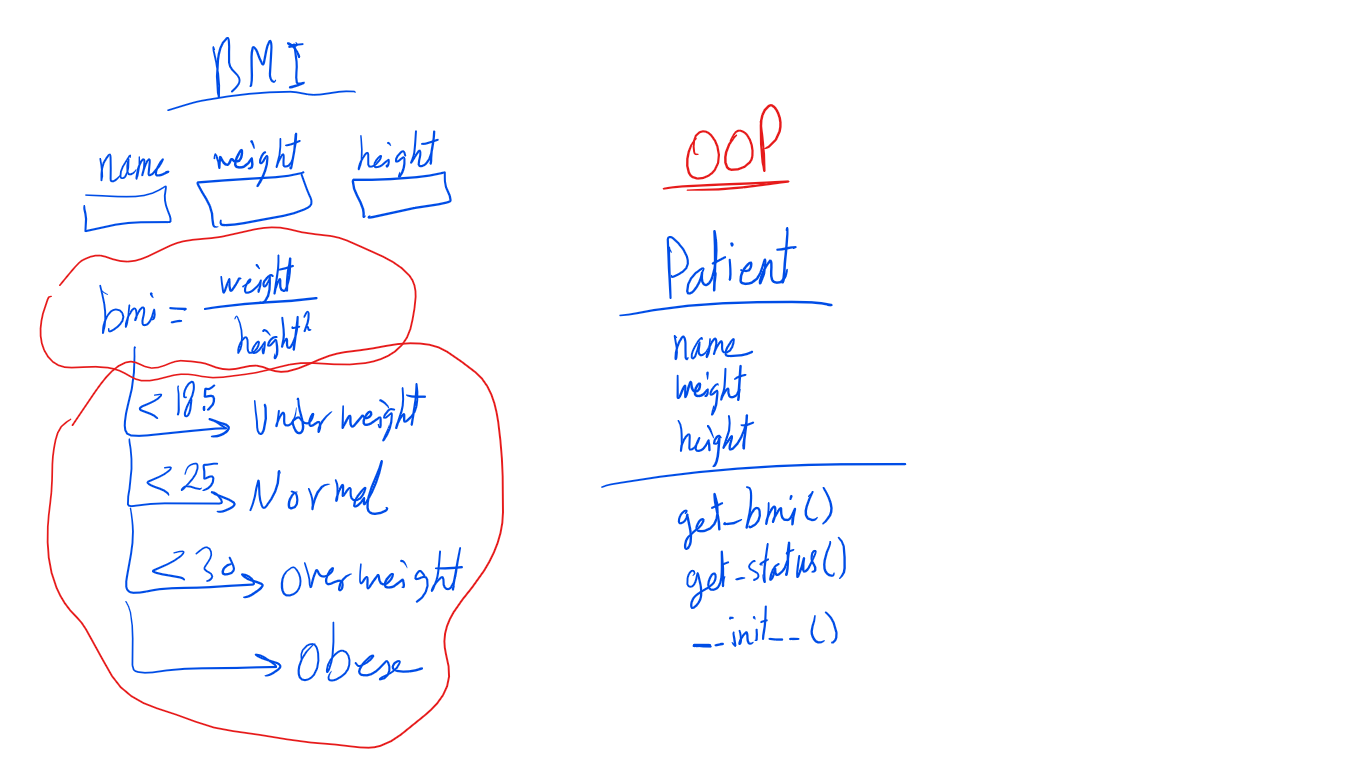 BMI
name weight height
bmi = weight / height²
< 18.5 Underweight
< 25 Normal
< 30 Overweight
Obese
OOP
Patient
name
weight
height
get_bmi()
get_status()
__init__()